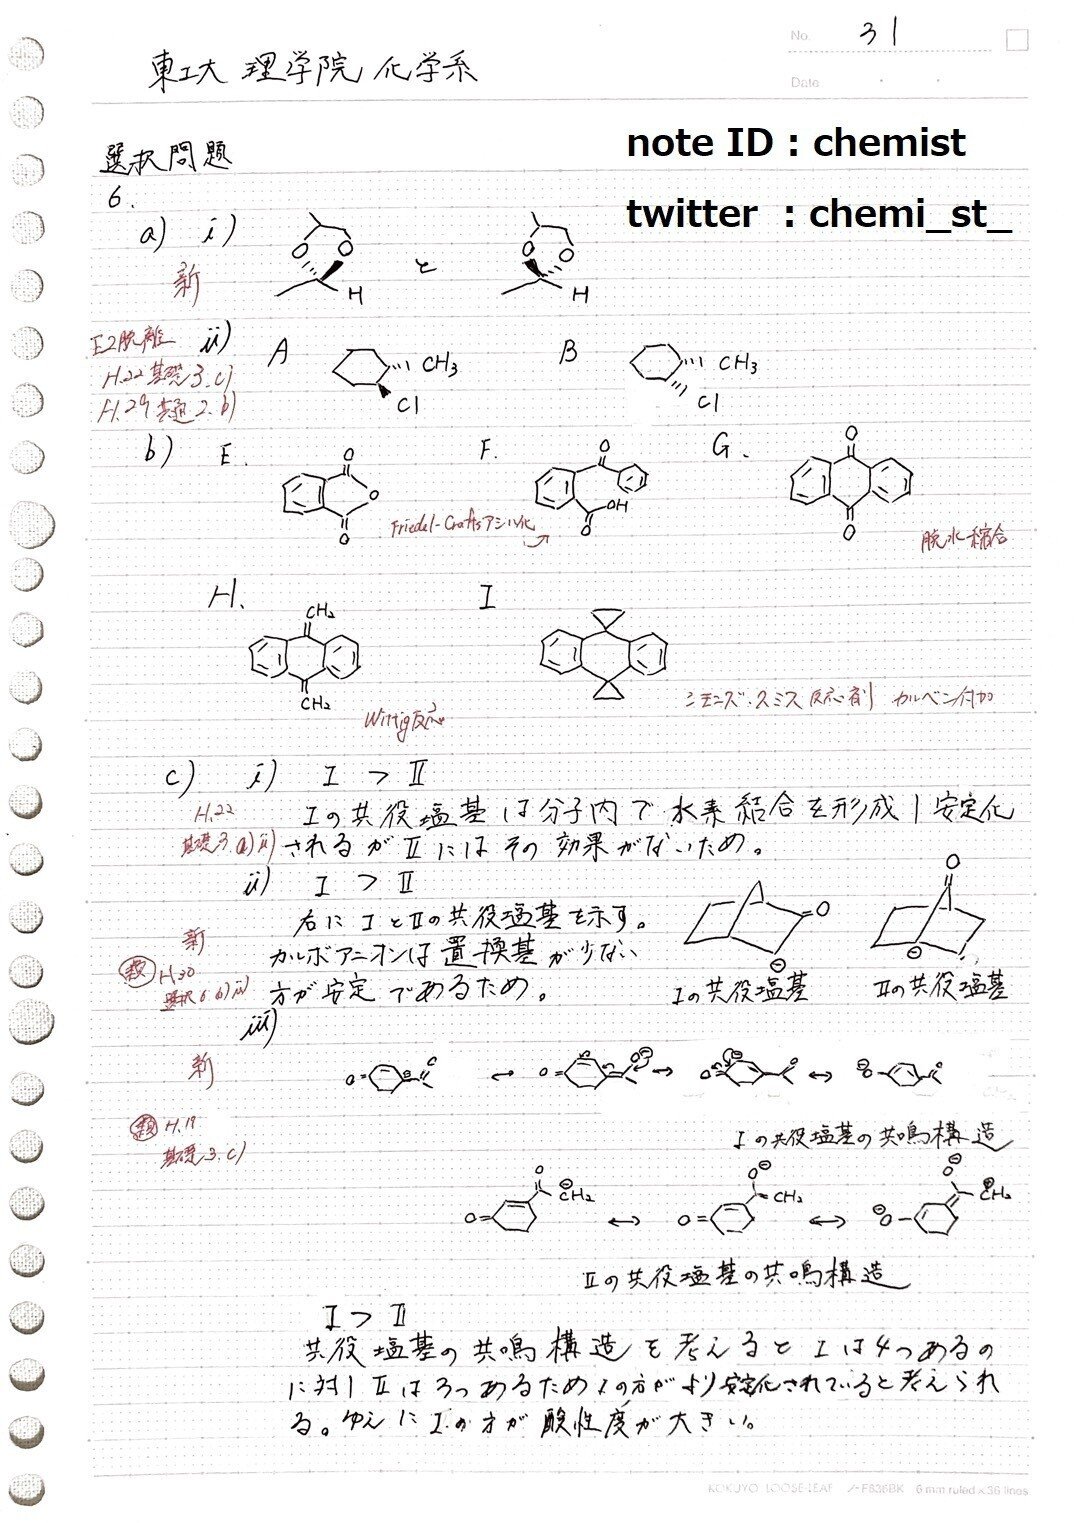 No. 31
Date
東工大 理学院 化学系
note ID : chemist
twitter : chemi_st_
選択問題
6.
a) i)
新
O O H と O O H
E2脱離 ii) A CH3 Cl B CH3 Cl
H.22 基礎 3. c)
H.29 共通 2. b)
b) E. O O O F. O OH O G. O O
Friedel-Craftsアシル化
脱水縮合
H. CH2 CH2 I
Wittig反応
シモンズ・スミス反応剤 カルベン付加
c) i) I > II
H.22
基礎3. a) ii)
Iの共役塩基は分子内で水素結合を形成し安定化
されるがIIにはその効果がないため。
ii) I > II
右にIとIIの共役塩基を示す。
カルボアニオンは置換基が少ない
方が安定であるため。
新
H.30
選択 6. b) ii)
O ⊖ O ⊖
Iの共役塩基 IIの共役塩基
iii)
新
H.19
基礎3. c)
Iの共役塩基の共鳴構造
O O ⊖CH2 ↔ O O⊖ CH2 ↔ ⊖O O⊖ ⊕CH2
IIの共役塩基の共鳴構造
I > II
共役塩基の共鳴構造を考えるとIは4つあるの
に対しIIは3つあるためIの方がより安定化されていると考えられ
る。ゆえにIの方が酸性度が大きい。
KOKUYO LOOSE-LEAF ノ-F836BK 6 mm ruled x 36 lines